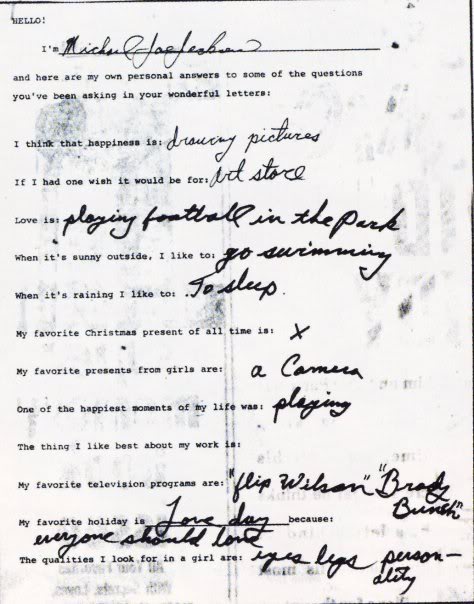 HELLO!
I'm Michael Joe Jackson
and here are my own personal answers to some of the questions
you've been asking in your wonderful letters:
I think that happiness is: drawing pictures
If I had one wish it would be for: Art store
Love is: playing football in the park
When it's sunny outside, I like to: go swimming
When it's raining I like to: To sleep.
My favorite Christmas present of all time is: X
My favorite presents from girls are: a Camera
One of the happiest moments of my life was: playing
The thing I like best about my work is:
My favorite television programs are: "flip Wilson" "Brady
Bunch"
My favorite holiday is Love day because:
everyone should love
The qualities I look for in a girl are: eyes legs person-
ality